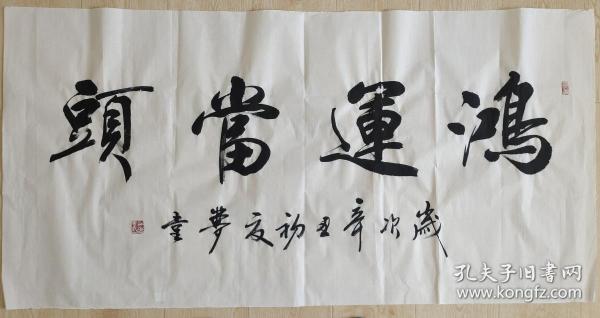 鴻運當頭
歲次辛丑初夏夢童
孔夫子旧书网
www.kongfz.com